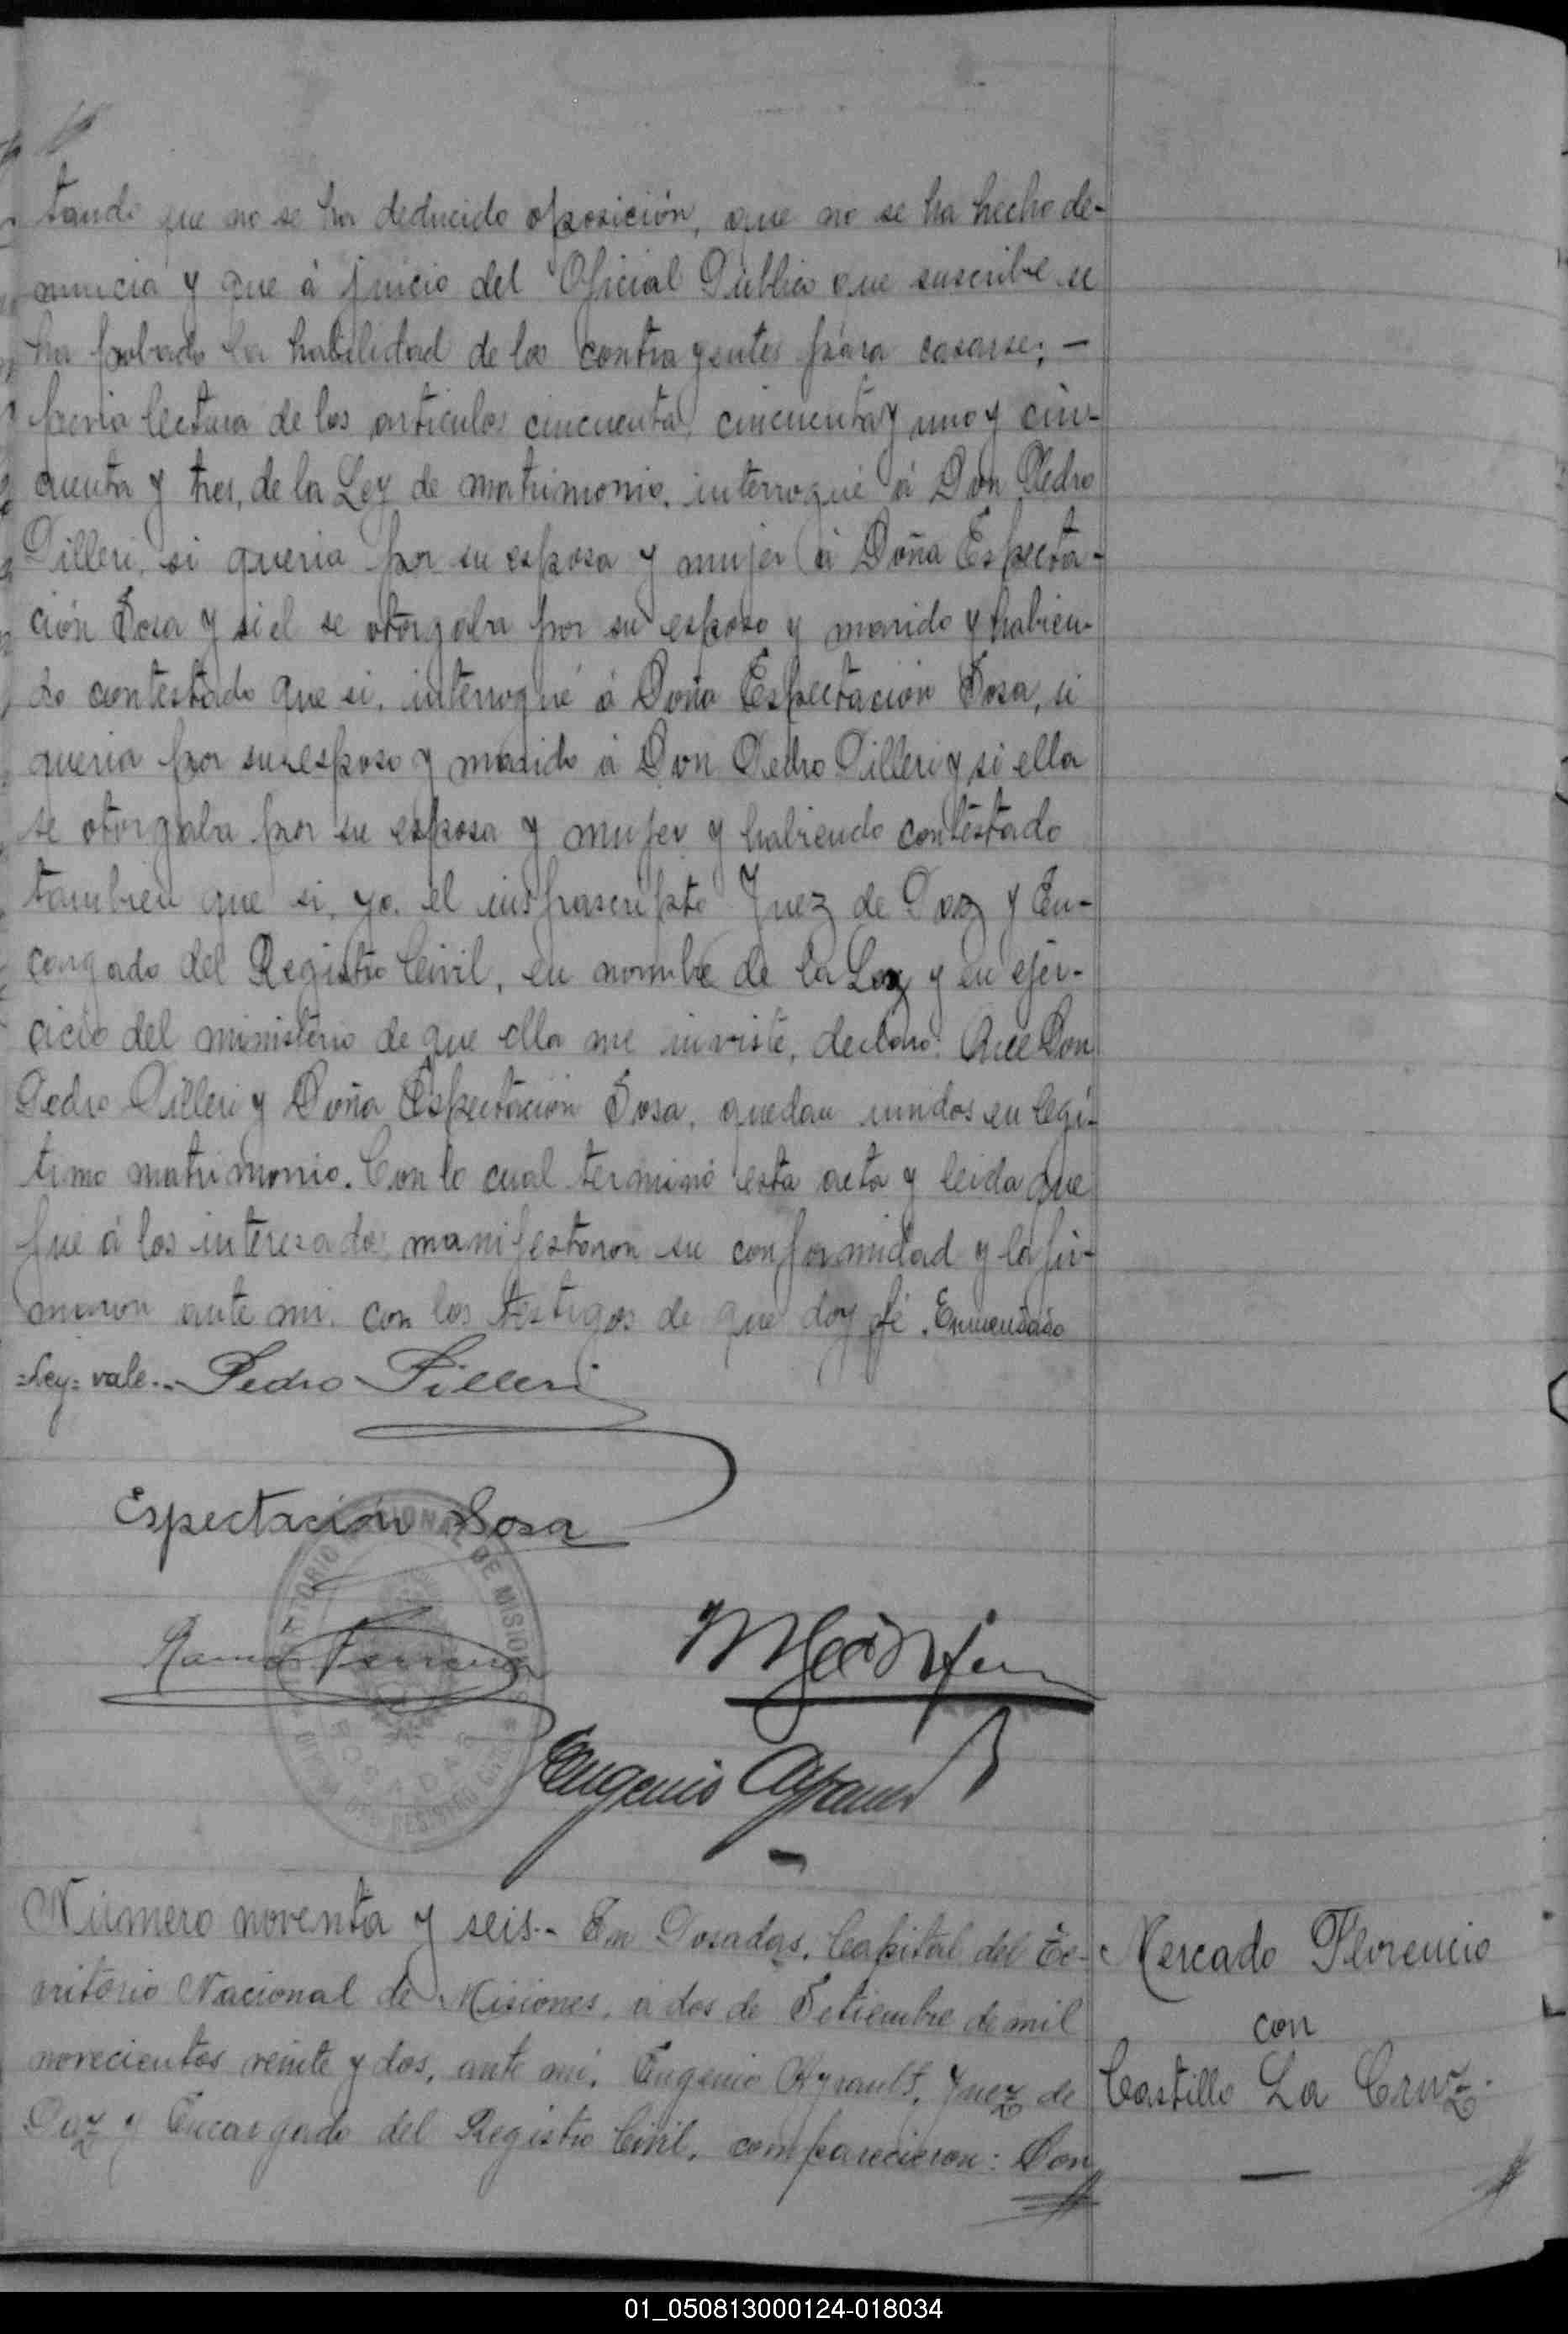 tando que no se ha deducido oposición, que no se ha hecho de-
nuncia y que á juicio del Oficial Público que suscribe se
ha probado la habilidad de los contrayentes para casarse; —
previa lectura de los articulos cincuenta, cincuenta y uno y cin-
cuenta y tres, de la Ley de matrimonio, interrogué á Don Pedro
Pilleri, si queria por su esposa y mujer á Doña Especta-
ción Sosa y si el se otorgaba por su esposo y marido y habien-
do contestado que si, interrogué á Doña Espectación Sosa, si
queria por su esposo y marido á Don Pedro Pilleri y si ella
se otorgaba por su esposa y mujer y habiendo contestado
tambien que si, yo, el infrascripto Juez de Paz y En-
cargado del Registro Civil, en nombre de la Ley y en ejer-
cicio del ministerio de que ella me inviste, declaro: Que Don
Pedro Pilleri y Doña Espectación Sosa, quedan unidos en legi-
timo matrimonio. Con lo cual terminó esta acta y leida que
fué á los interesados manifestaron su conformidad y la fir-
maron ante mi, con los testigos de que doy fé. Enmendado
=Ley= vale.- Pedro Pilleri
Espectación Sosa
TERRITORIO NACIONAL DE MISIONES
POSADAS
Eugenio
Número noventa y seis.- En Posadas, Capital del Te-
rritorio Nacional de Misiones, á dos de Setiembre de mil
novecientos veinte y dos, ante mi, Eugenio Ayrault, Juez de
Paz y Encargado del Registro Civil, comparecieron: Don
Mercado Florencio
con
Castillo La Cruz.
—
01_050813000124-018034